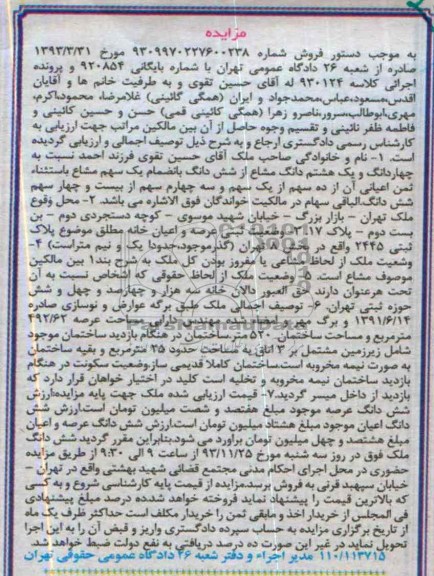 مزایده
به موجب دستور فروش شماره ۹۳۰۹۹۷۰۲۲۷۶۰۰۲۳۸ مورخ ۱۳۹۳/۳/۳۱
صادره از شعبه ۲۶ دادگاه عمومی تهران با شماره بایگانی ۹۲۰۸۵۴ و پرونده
اجرائی کلاسه ۹۳۰۱۲۴ له آقای حسین تقوی و به طرفیت خانم ها و آقایان
اقدس،مسعود،عباس،محمدجواد و ایران (همگی گائینی) غلامرضا، محمود،اکرم،
مهری،ابوطالب،سرور،ناصرو زهرا (همگی کائینی قمی) حسن و حسین کائینی و
فاطمه ظفر نائینی و تقسیم وجوه حاصل از آن بین مالکین مراتب جهت ارزیابی به
کارشناس رسمی دادگستری ارجاع و به شرح ذیل توصیف اجمالی و ارزیابی گردیده
است. ۱- نام و خانوادگی صاحب ملک آقای حسین تقوی فرزند احمد نسبت به
چهاردانگ و یک هشتم دانگ مشاع از شش دانگ بانضمام یک سهم مشاع باستثناء
ثمن اعیانی آن از ده سهم از یک سهم و سه چهارم سهم از بیست و چهار سهم
شش دانگ.الباقی سهام در مالکیت خواندگان فوق الاشاره می باشد. ۲- محل وقوع
ملک تهران - بازار بزرگ - خیابان شهید موسوی - کوچه دستجردی دوم - بن
بست دوم - پلاک ۱۷ ۳- وضعیت ثبتی عرصه و اعیان خانه مطلق موضوع پلاک
ثبتی ۲۴۴۵ واقع در بخش تهران (گذرموجود،حدودا یک و نیم متراست) ۴-
وضعیت ملک از لحاظ مشاعی یا مفروز بودن کل ملک به شرح بند۱ بین مالکین
موصوف مشاع است. ۵- وضعیت ملک از لحاظ حقوقی که اشخاص نسبت به آن
تحت هرعنوان دارند حق العبور دالان خانه سه هزار و چهارصد و چهل و شش
حوزه ثبتی تهران. ۶- توصیف اجمالی ملک طبق برگه عوارض و نوسازی صادره
۱۳۹۱/۶/۱۴ و برگ مهر و امضاء شده مهندسی دارایی مساحت عرصه ۴۹۲/۶۳
مترمربع و مساحت ساختمان ۵۲۰ مترساختمان در هنگام بازدید ساختمان موجود
شامل زیرزمین مشتمل بر ۳ اتاق به مساحت حدود ۳۵ مترمربع و بقیه ساختمان
به صورت نیمه مخروبه است.ساختمان کاملا قدیمی ساز.وضعیت سکونت در هنگام
بازدید ساختمان نیمه مخروبه و تخلیه است کلید در اختیار خواهان قرار دارد که
بازدید از داخل میسر گردید.۷- قیمت ارزیابی شده ملک جهت پایه مزایده،ارزش
شش دانگ عرصه موجود مبلغ هفتصد و شصت میلیون تومان است.ارزش شش
دانگ اعیان موجود مبلغ هشتاد میلیون تومان است.ارزش شش دانگ عرصه و اعیان
مبلغ هشتصد و چهل میلیون تومان برآورد می شود.بنابراین مقرر گردید شش دانگ
ملک فوق در روز سه شنبه مورخ ۹۳/۱۱/۲۵ از ساعت ۹ الی ۹:۳۰ از طریق مزایده
حضوری در محل اجرای احکام مدنی مجتمع قضائی شهید بهشتی واقع در تهران -
خیابان سپهبد قرنی به فروش برسد.مزایده از قیمت پایه کارشناسی شروع و به کسی
که بالاترین قیمت را پیشنهاد نماید فروخته خواهد شد.ده درصد مبلغ پیشنهادی
فی المجلس از خریدار اخذ و مابقی ثمن را خریدار مکلف است حداکثر ظرف یک ماه
از تاریخ برگزاری مزایده به حساب سپرده دادگستری واریز و قبض آن را به این اجرا
تحویل نماید در غیر این صورت ده درصد دریافتی به نفع دولت ضبط خواهد شد.
۱۱۰/۱۱۳۷۱۵ مدیر اجراء و دفتر شعبه ۲۶ دادگاه عمومی حقوقی تهران